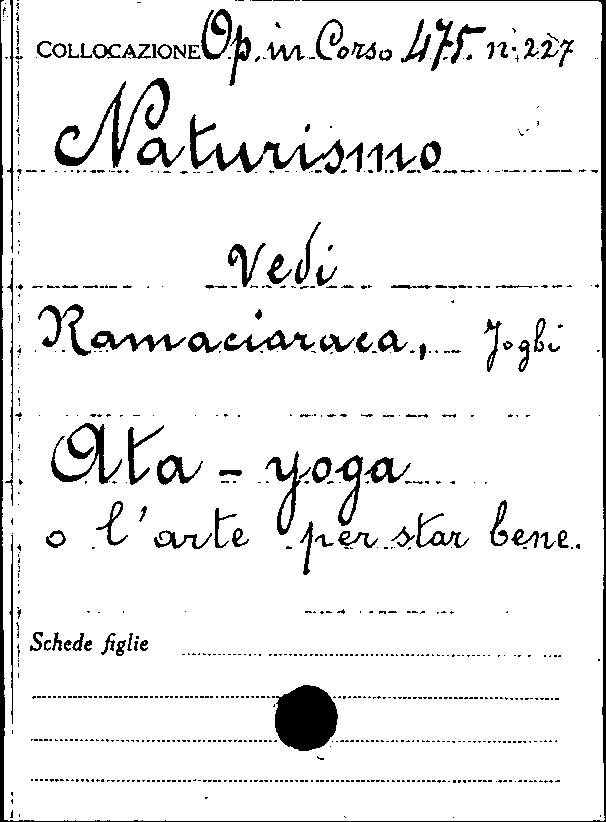 COLLOCAZIONE Op. in Corso 475. n. 227
Naturismo
Vedi
Ramaciaraca, Joghi
Ata - yoga
o l'arte per star bene.
Schede figlie